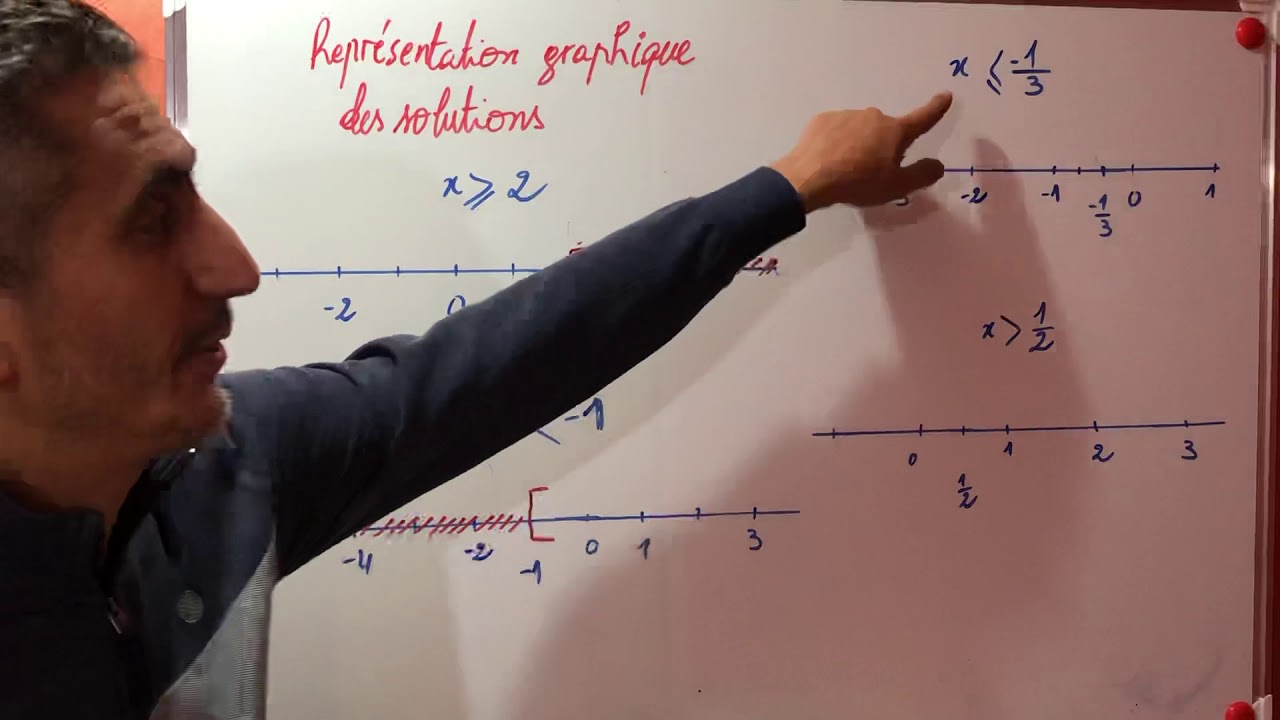 Représentation graphique
des solutions
x ⩾ 2
-2 0
-1
-4 -2 -1 0 1 3
x ⩽ -1/3
-2 -1 -1/3 0 1
x > 1/2
0 1/2 1 2 3